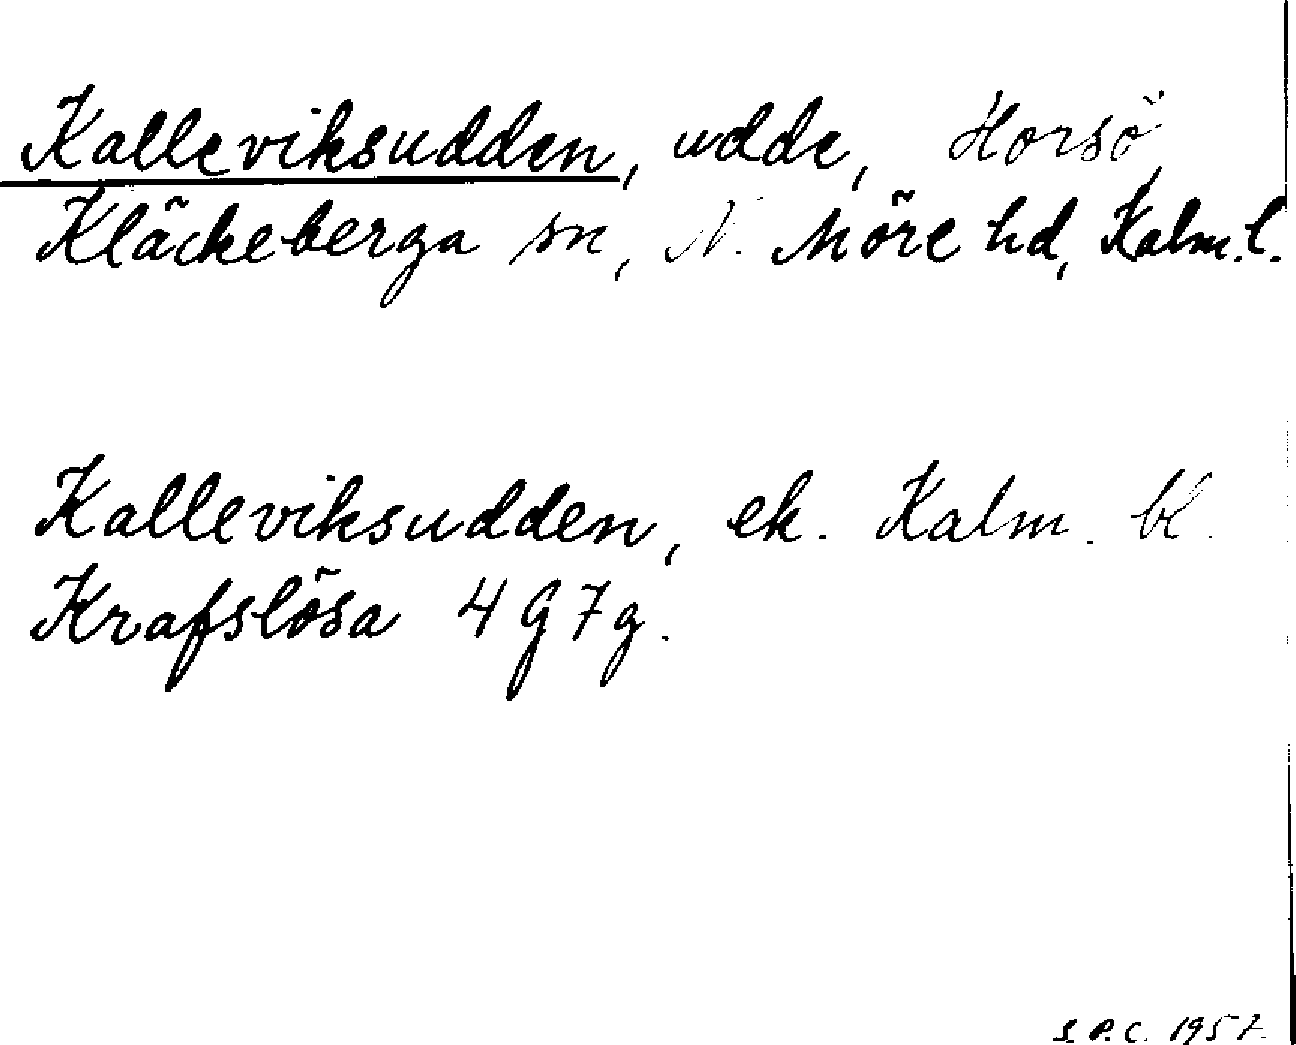 Kalleviksudden, udde, Horsö,
Kläckeberga sn, N. Möre hd, Kalm. l.
Kalleviksudden, ek. Kalm. bl.
Krafslösa 4 G 7 g.
S.P.C. 1957.